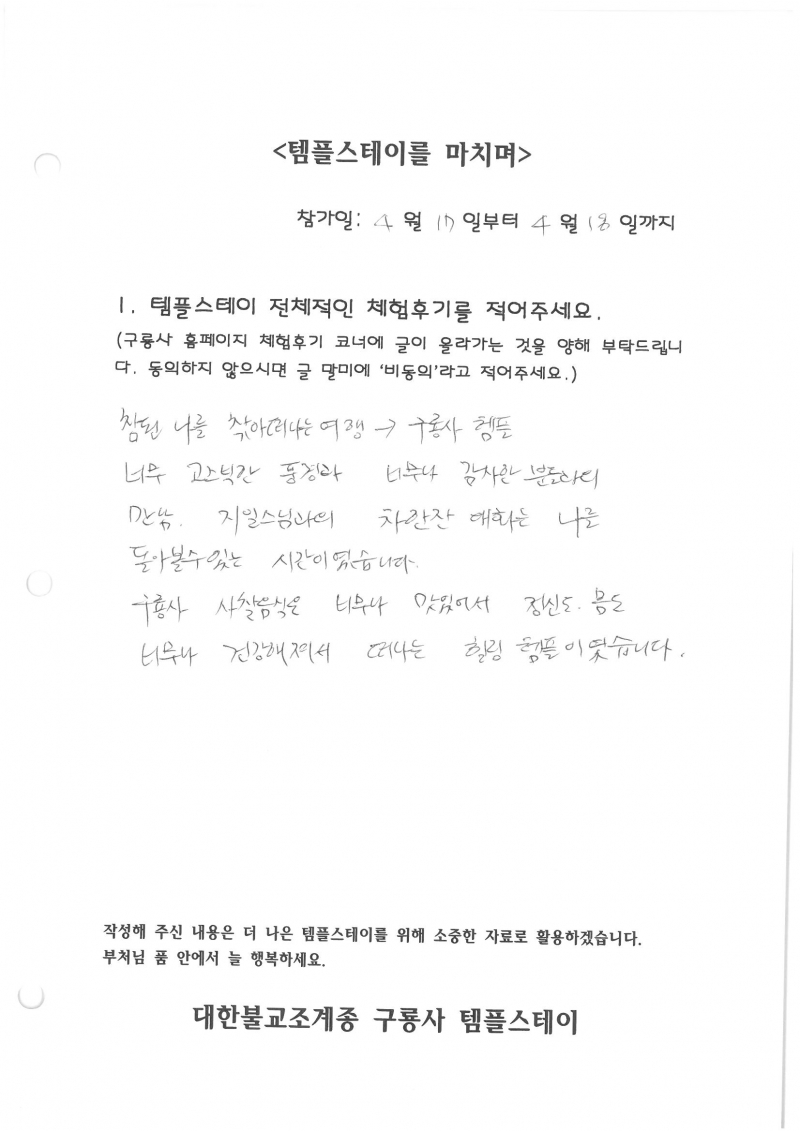 <템플스테이를 마치며>
참가일: 4 월 17 일부터 4 월 18 일까지
1. 템플스테이 전체적인 체험후기를 적어주세요.
(구룡사 홈페이지 체험후기 코너에 글이 올라가는 것을 양해 부탁드립니
다. 동의하지 않으시면 글 말미에 '비동의'라고 적어주세요.)
참된 나를 찾아떠나는 여행 → 구룡사 템플
너무 고즈넉한 풍경과 너무나 감사한 분들과의
만남. 지일스님과의 차한잔 대화는 나를
돌아볼수있는 시간이였습니다.
구룡사 사찰음식은 너무나 맛있어서 정신도. 몸도
너무나 건강해져서 떠나는 힐링 템플이였습니다.
작성해 주신 내용은 더 나은 템플스테이를 위해 소중한 자료로 활용하겠습니다.
부처님 품 안에서 늘 행복하세요.
대한불교조계종 구룡사 템플스테이